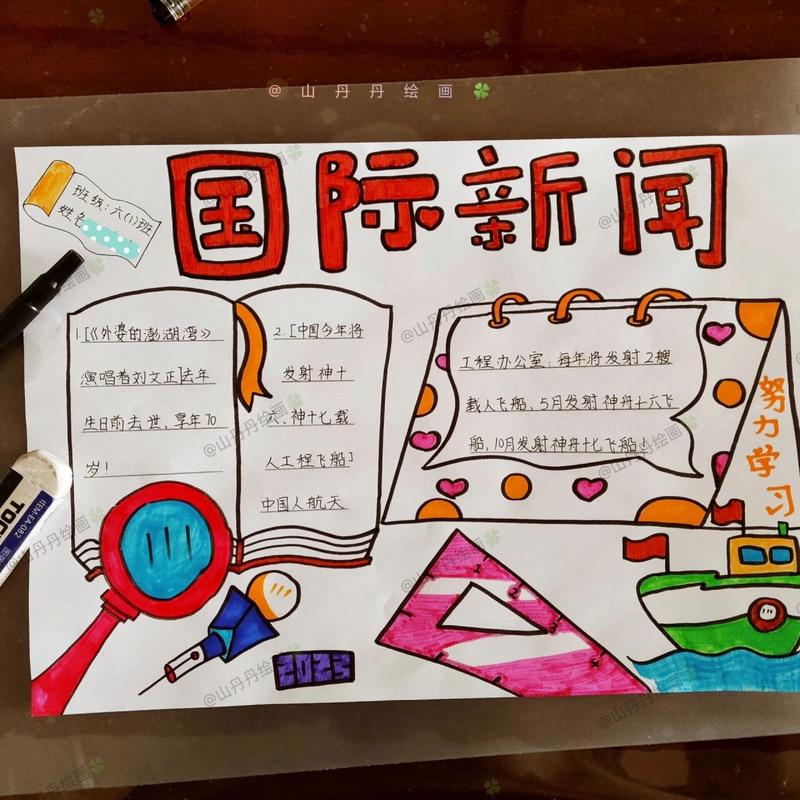 @山丹丹绘画
国际新闻
班级:六(1)班
姓名
1.[《外婆的澎湖湾》
演唱者刘文正]去年
生日前去世,享年70
岁!
2.[中国今年将
发射神十
六、神十七载
人工程飞船]
中国人航天
工程办公室:每年将发射2艘
载人飞船,5月发射神舟十六飞
船,10月发射神舟十七飞船!
努力学习
2023
ITEM-EA-082
@山丹丹绘画